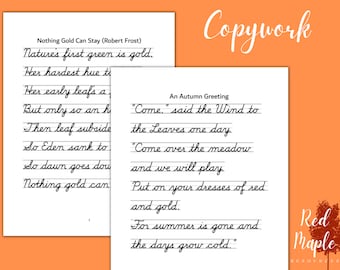 Copywork
Nothing Gold Can Stay (Robert Frost)
Nature's first green is gold,
Her hardest hue t
Her early leafs a
But only so an h
Then leaf subside
So Eden sank to
So dawn goes dow
Nothing gold can
An Autumn Greeting
"Come," said the Wind to
the Leaves one day.
"Come over the meadow
and we will play.
Put on your dresses of red
and gold.
For summer is gone and
the days grow cold."
Red
Maple